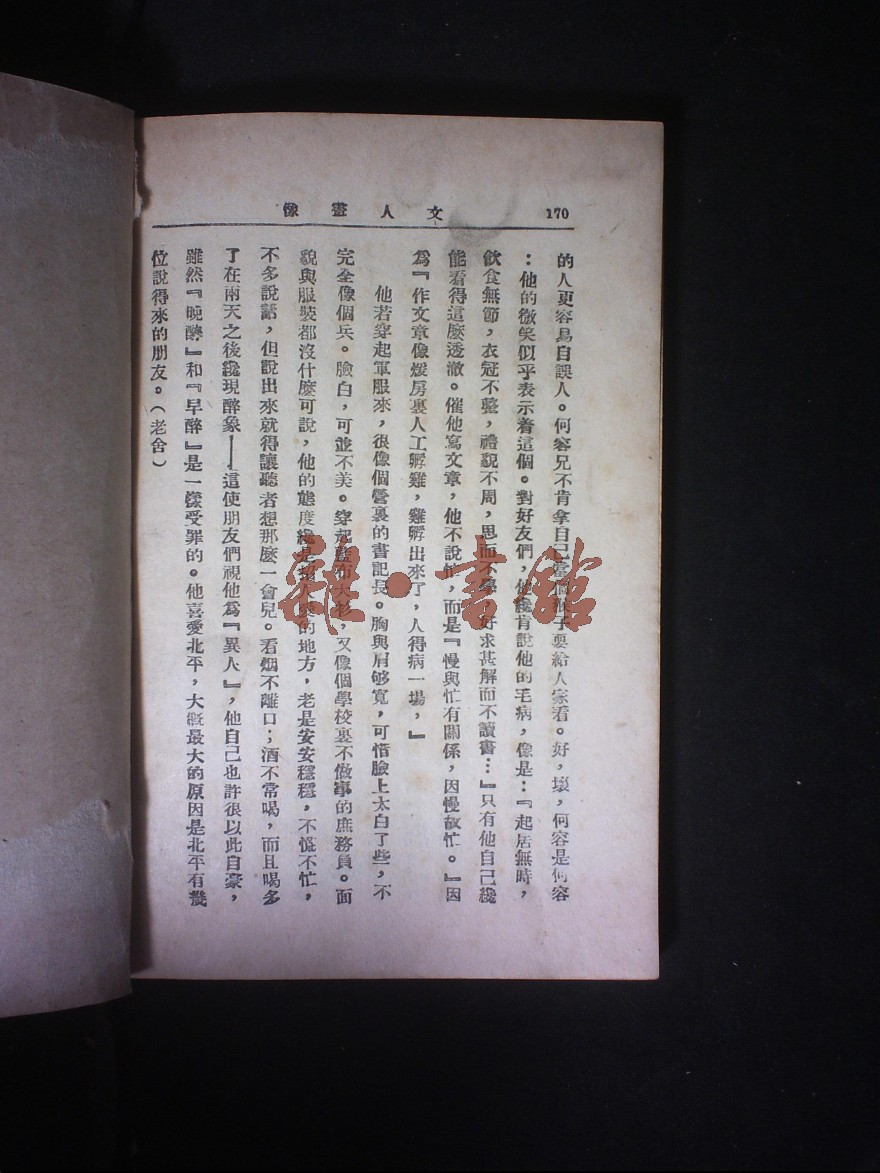 170
文人畫像
的人更容易自誤人。何容兄不肯拿自己當個猴子耍給人家看。好，壞，何容是何容
：他的微笑似乎表示着這個。對好友們，他纔肯說他的毛病，像是：『起居無時，
飲食無節，衣冠不整，禮貌不周，思而不學，好求甚解而不讀書…』只有他自己纔
能看得這麼透澈。催他寫文章，他不說忙，而是『慢與忙有關係，因慢故忙。』因
爲『作文章像煖房裏人工孵雞，雞孵出來了，人得病一場，』
他若穿起軍服來，很像個營裏的書記長。胸與肩够寬，可惜臉上太白了些，不
完全像個兵。臉白，可並不美。穿起藍布大衫，又像個學校裏不做事的庶務員。面
貌與服裝都沒什麼可說，他的態度纔是招人愛的地方，老是安安穩穩，不慌不忙，
不多說話，但說出來就得讓聽者想那麼一會兒。看烟不離口；酒不常喝，而且喝多
了在兩天之後纔現醉象——這使朋友們視他爲『異人』，他自己也許很以此自豪，
雖然『晚醉』和『早醉』是一樣受罪的。他喜愛北平，大概最大的原因是北平有幾
位說得來的朋友。（老舍）
雜·書館